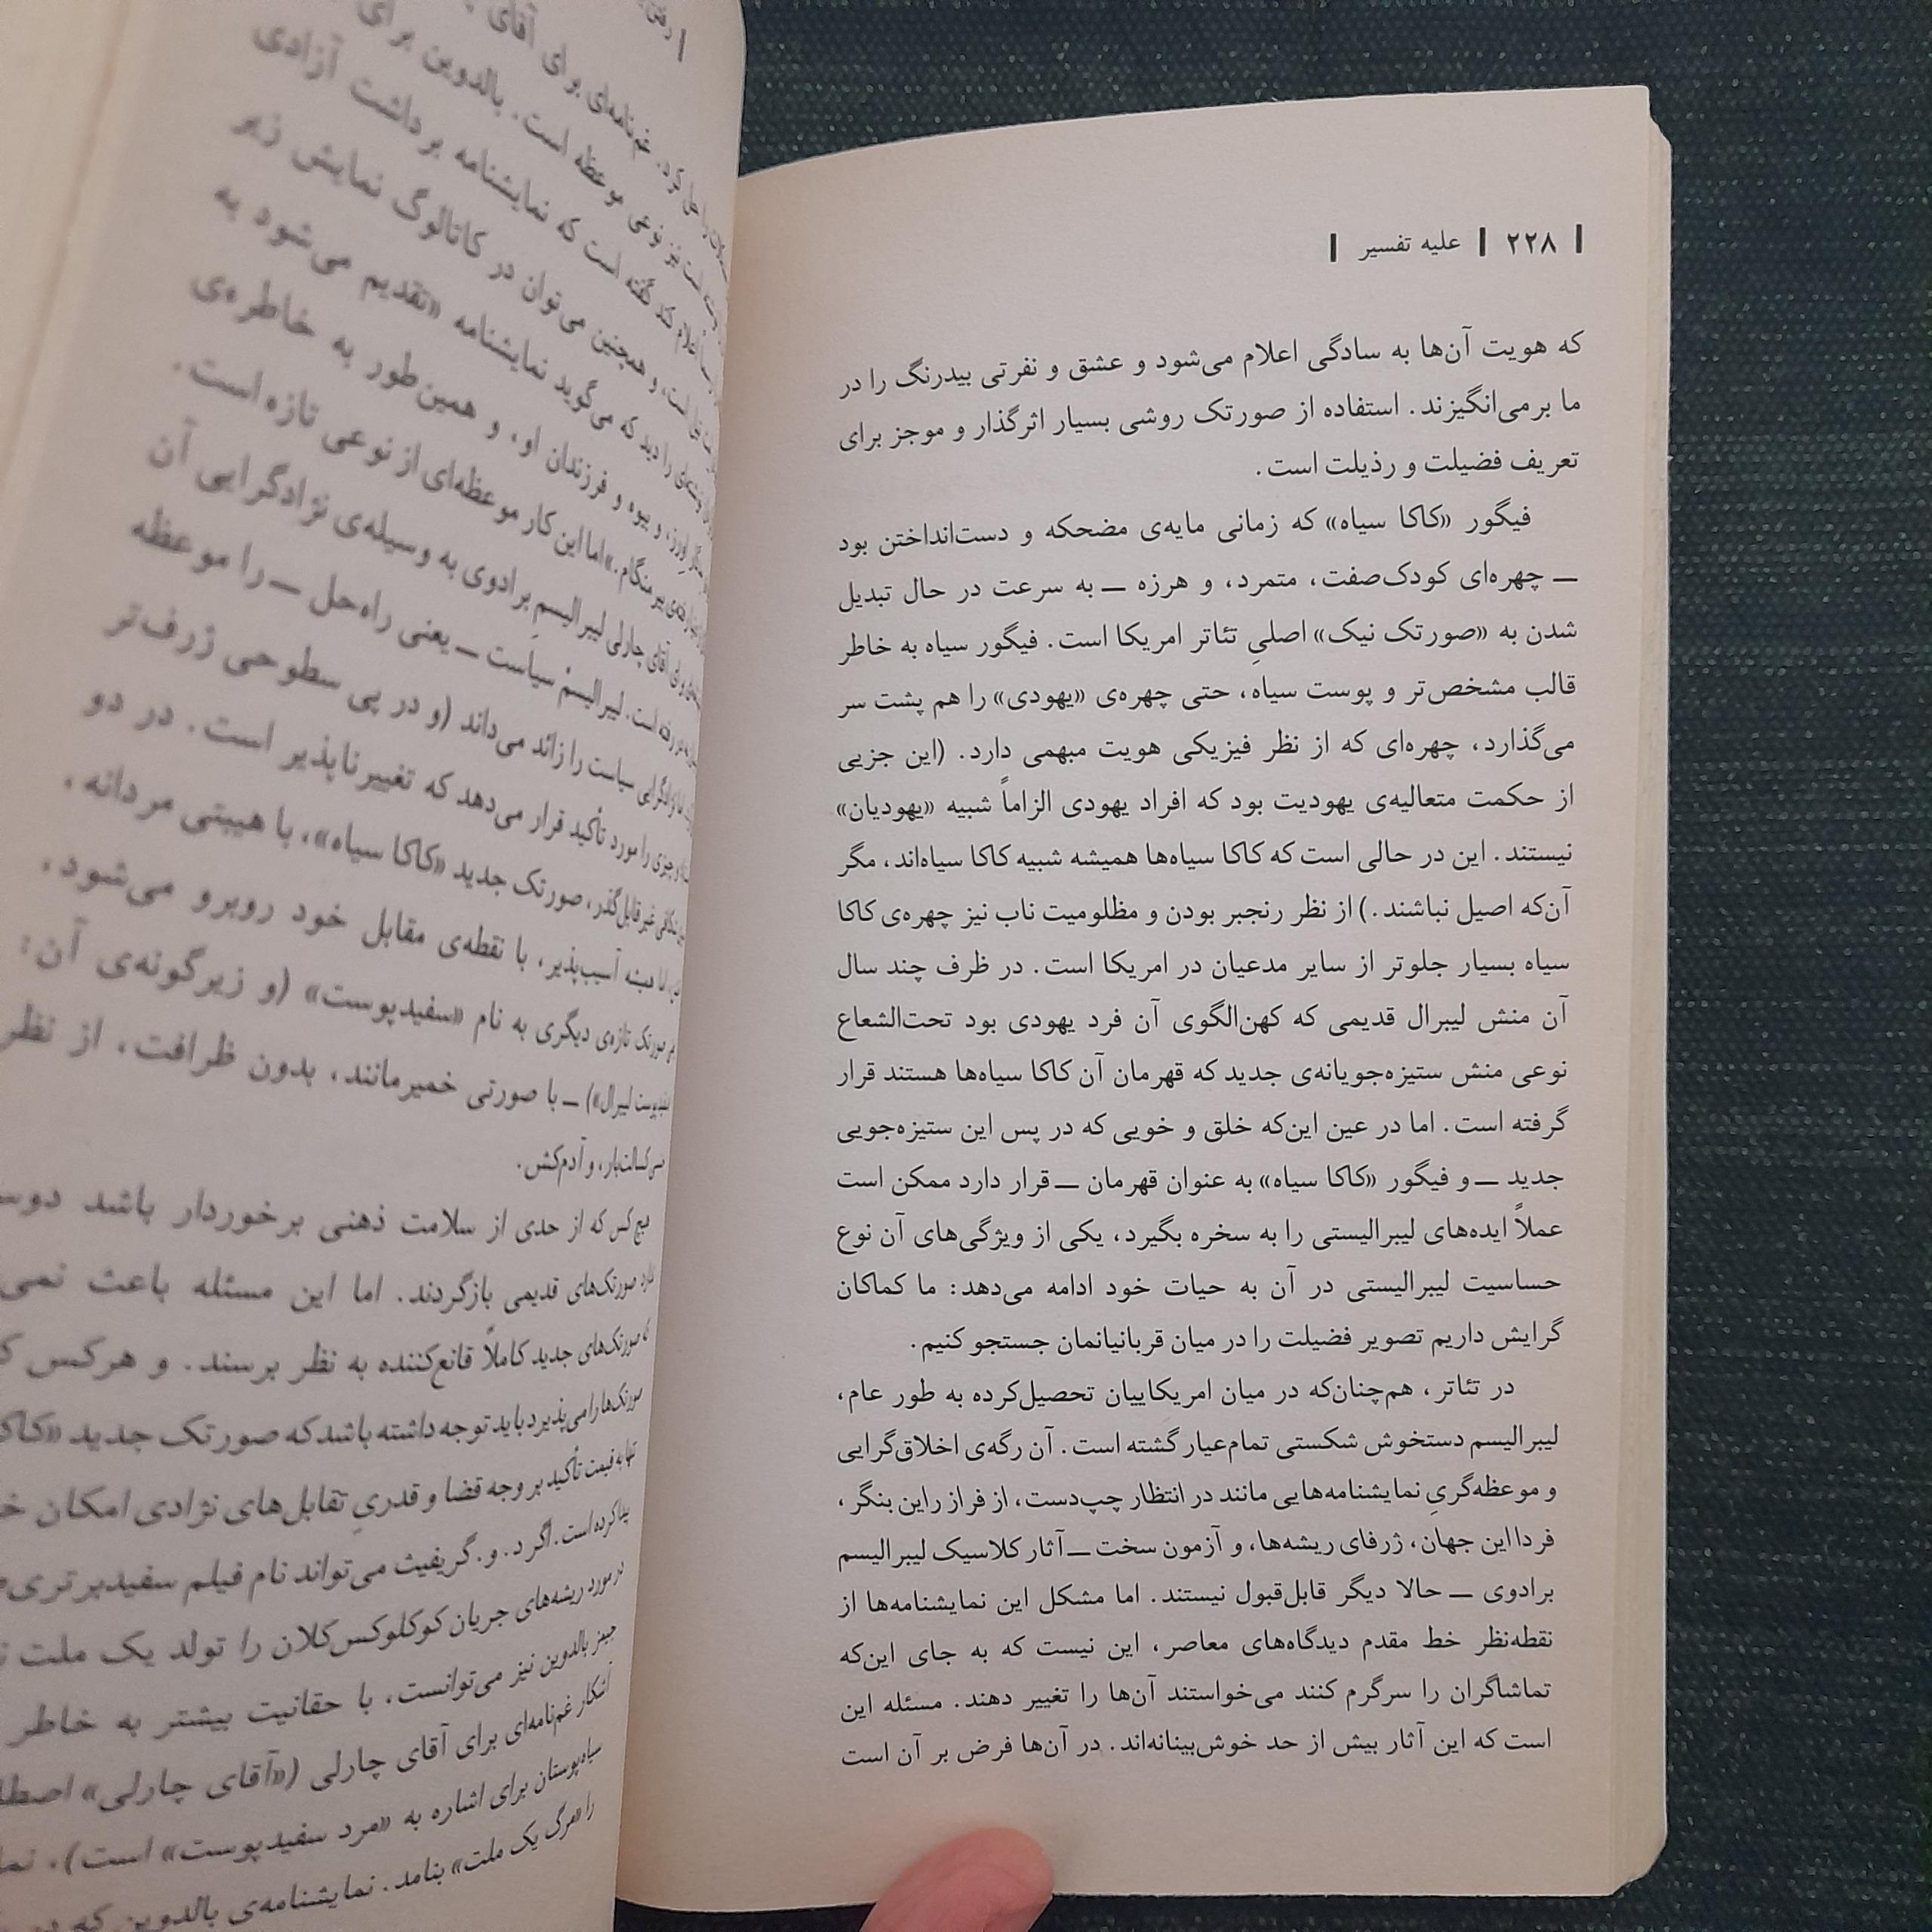 ۲۲۸ | علیه تفسیر
که هویت آن‌ها به سادگی اعلام می‌شود و عشق و نفرتی بیدرنگ را در
ما برمی‌انگیزند. استفاده از صورتک روشی بسیار اثرگذار و موجز برای
تعریف فضیلت و رذیلت است.
فیگور «کاکا سیاه» که زمانی مایه‌ی مضحکه و دست‌انداختن بود
— چهره‌ای کودک‌صفت، متمرد، و هرزه — به سرعت در حال تبدیل
شدن به «صورتک نیک» اصلیِ تئاتر امریکا است. فیگور سیاه به خاطر
قالب مشخص‌تر و پوست سیاه، حتی چهره‌ی «یهودی» را هم پشت سر
می‌گذارد، چهره‌ای که از نظر فیزیکی هویت مبهمی دارد. (این جزیی
از حکمت متعالیه‌ی یهودیت بود که افراد یهودی الزاماً شبیه «یهودیان»
نیستند. این در حالی است که کاکا سیاه‌ها همیشه شبیه کاکا سیاه‌اند، مگر
آن‌که اصیل نباشند.) از نظر رنجبر بودن و مظلومیت ناب نیز چهره‌ی کاکا
سیاه بسیار جلوتر از سایر مدعیان در امریکا است. در ظرف چند سال
آن منش لیبرال قدیمی که کهن‌الگوی آن فرد یهودی بود تحت‌الشعاع
نوعی منش ستیزه‌جویانه‌ی جدید که قهرمان آن کاکا سیاه‌ها هستند قرار
گرفته است. اما در عین این‌که خلق و خویی که در پس این ستیزه‌جویی
جدید — و فیگور «کاکا سیاه» به عنوان قهرمان — قرار دارد ممکن است
عملاً ایده‌های لیبرالیستی را به سخره بگیرد، یکی از ویژگی‌های آن نوع
حساسیت لیبرالیستی در آن به حیات خود ادامه می‌دهد: ما کماکان
گرایش داریم تصویر فضیلت را در میان قربانیانمان جستجو کنیم.
در تئاتر، هم‌چنان‌که در میان امریکاییان تحصیل‌کرده به طور عام،
لیبرالیسم دستخوش شکستی تمام‌عیار گشته است. آن رگه‌ی اخلاق‌گرایی
و موعظه‌گریِ نمایشنامه‌هایی مانند در انتظار چپ‌دست، از فراز راین بنگر،
فردا این جهان، ژرفای ریشه‌ها، و آزمون سخت — آثار کلاسیک لیبرالیسم
برادوی — حالا دیگر قابل‌قبول نیستند. اما مشکل این نمایشنامه‌ها از
نقطه‌نظر خط مقدم دیدگاه‌های معاصر، این نیست که به جای این‌که
تماشاگران را سرگرم کنند می‌خواستند آن‌ها را تغییر دهند. مسئله این
است که این آثار بیش از حد خوش‌بینانه‌اند. در آن‌ها فرض بر آن است
غم‌نامه‌ای برای آقای
نوعی موعظه است. بالدوین برای
گفته است که نمایشنامه برداشت آزادی
و همچنین می‌توان در کاتالوگ نمایش زیر
را دید که می‌گوید نمایشنامه «تقدیم می‌شود به
و بیوه و فرزندان او، و همین‌طور به خاطره‌ی
اما این کار موعظه‌ای از نوعی تازه است.
برای آقای چارلی لیبرالیسمِ برادوی به وسیله‌ی نژادگرایی آن
رفته است. لیبرالیسم سیاست — یعنی راه‌حل — را موعظه
سیاست را زائد می‌داند (و در پی سطوحی ژرف‌تر
چیزی را مورد تأکید قرار می‌دهد که تغییرناپذیر است. در دو
غیرقابل‌گذر، صورتک جدید «کاکا سیاه»، با هیبتی مردانه،
اما همیشه آسیب‌پذیر، با نقطه‌ی مقابل خود روبرو می‌شود،
صورتک تازه‌ی دیگری به نام «سفیدپوست» (و زیرگونه‌ی آن:
لیبرال») — با صورتی خمیرمانند، بدون ظرافت، از نظر
کسالت‌بار، و آدم‌کش.
هیچ کس که از حدی از سلامت ذهنی برخوردار باشد
صورتک‌های قدیمی بازگردند. اما این مسئله باعث
صورتک‌های جدید کاملاً قانع‌کننده به نظر برسند. و هرکس
صورتک‌ها را می‌پذیرد باید توجه داشته باشد که صورتک جدید
تنها به قیمت تأکید بر وجه قضا و قدریِ تقابل‌های نژادی امکان
پیدا کرده است. اگر د. و. گریفیث می‌تواند نام فیلم
در مورد ریشه‌های جریان کوکلوکس‌کلان را تولد یک ملت
جیمز بالدوین نیز می‌توانست، با حقانیت بیشتر به خاطر
آشکار غم‌نامه‌ای برای آقای چارلی («آقای چارلی»
سیاه‌پوستان برای اشاره به «مرد سفیدپوست» است).
را «مرگ یک ملت» بنامد. نمایشنامه‌ی بالدوین که